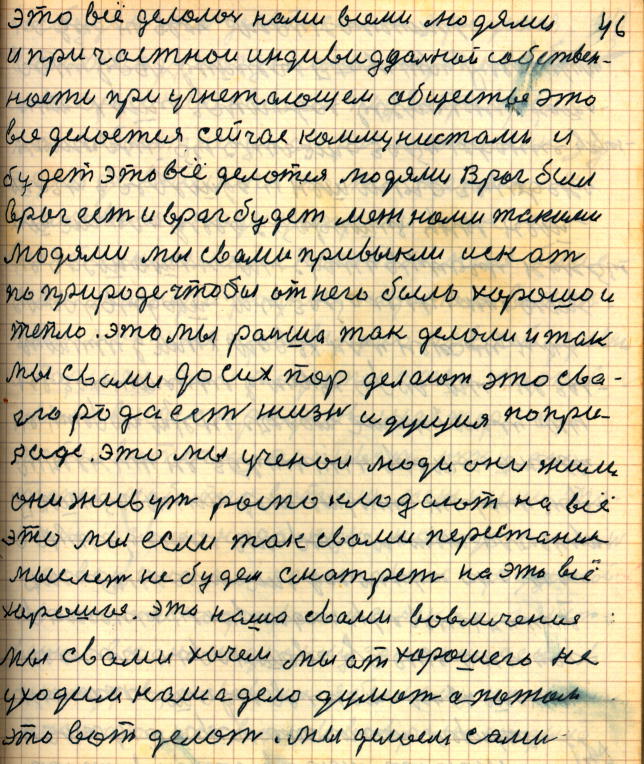 46
это всё делолоч нами всеми людями
и при частной индивиддалной собствен-
ности при угнетающем обществе это
все делоется сейчас коммунистами и
будет это всё делотся людями Враг были
враг ест и враг будет меж нами такими
людями мы свами привыкли искат
по природе чтобы от него было хорошо и
тепло. это мы ранша так делоли и так
мы свами до сих пор делают это сва-
его рода ест жизн идущия по при-
роде. это мы ученои люди они жили
они живут роспоклодают на всё
это мы если так свами перестаним
мыслет не будем смотрет на это всё
хорошое. это наша свами вовличение
мы свами хочем мы от хорошего не
уходим наша дело думат а потом
это вот делат. мы делоем сами